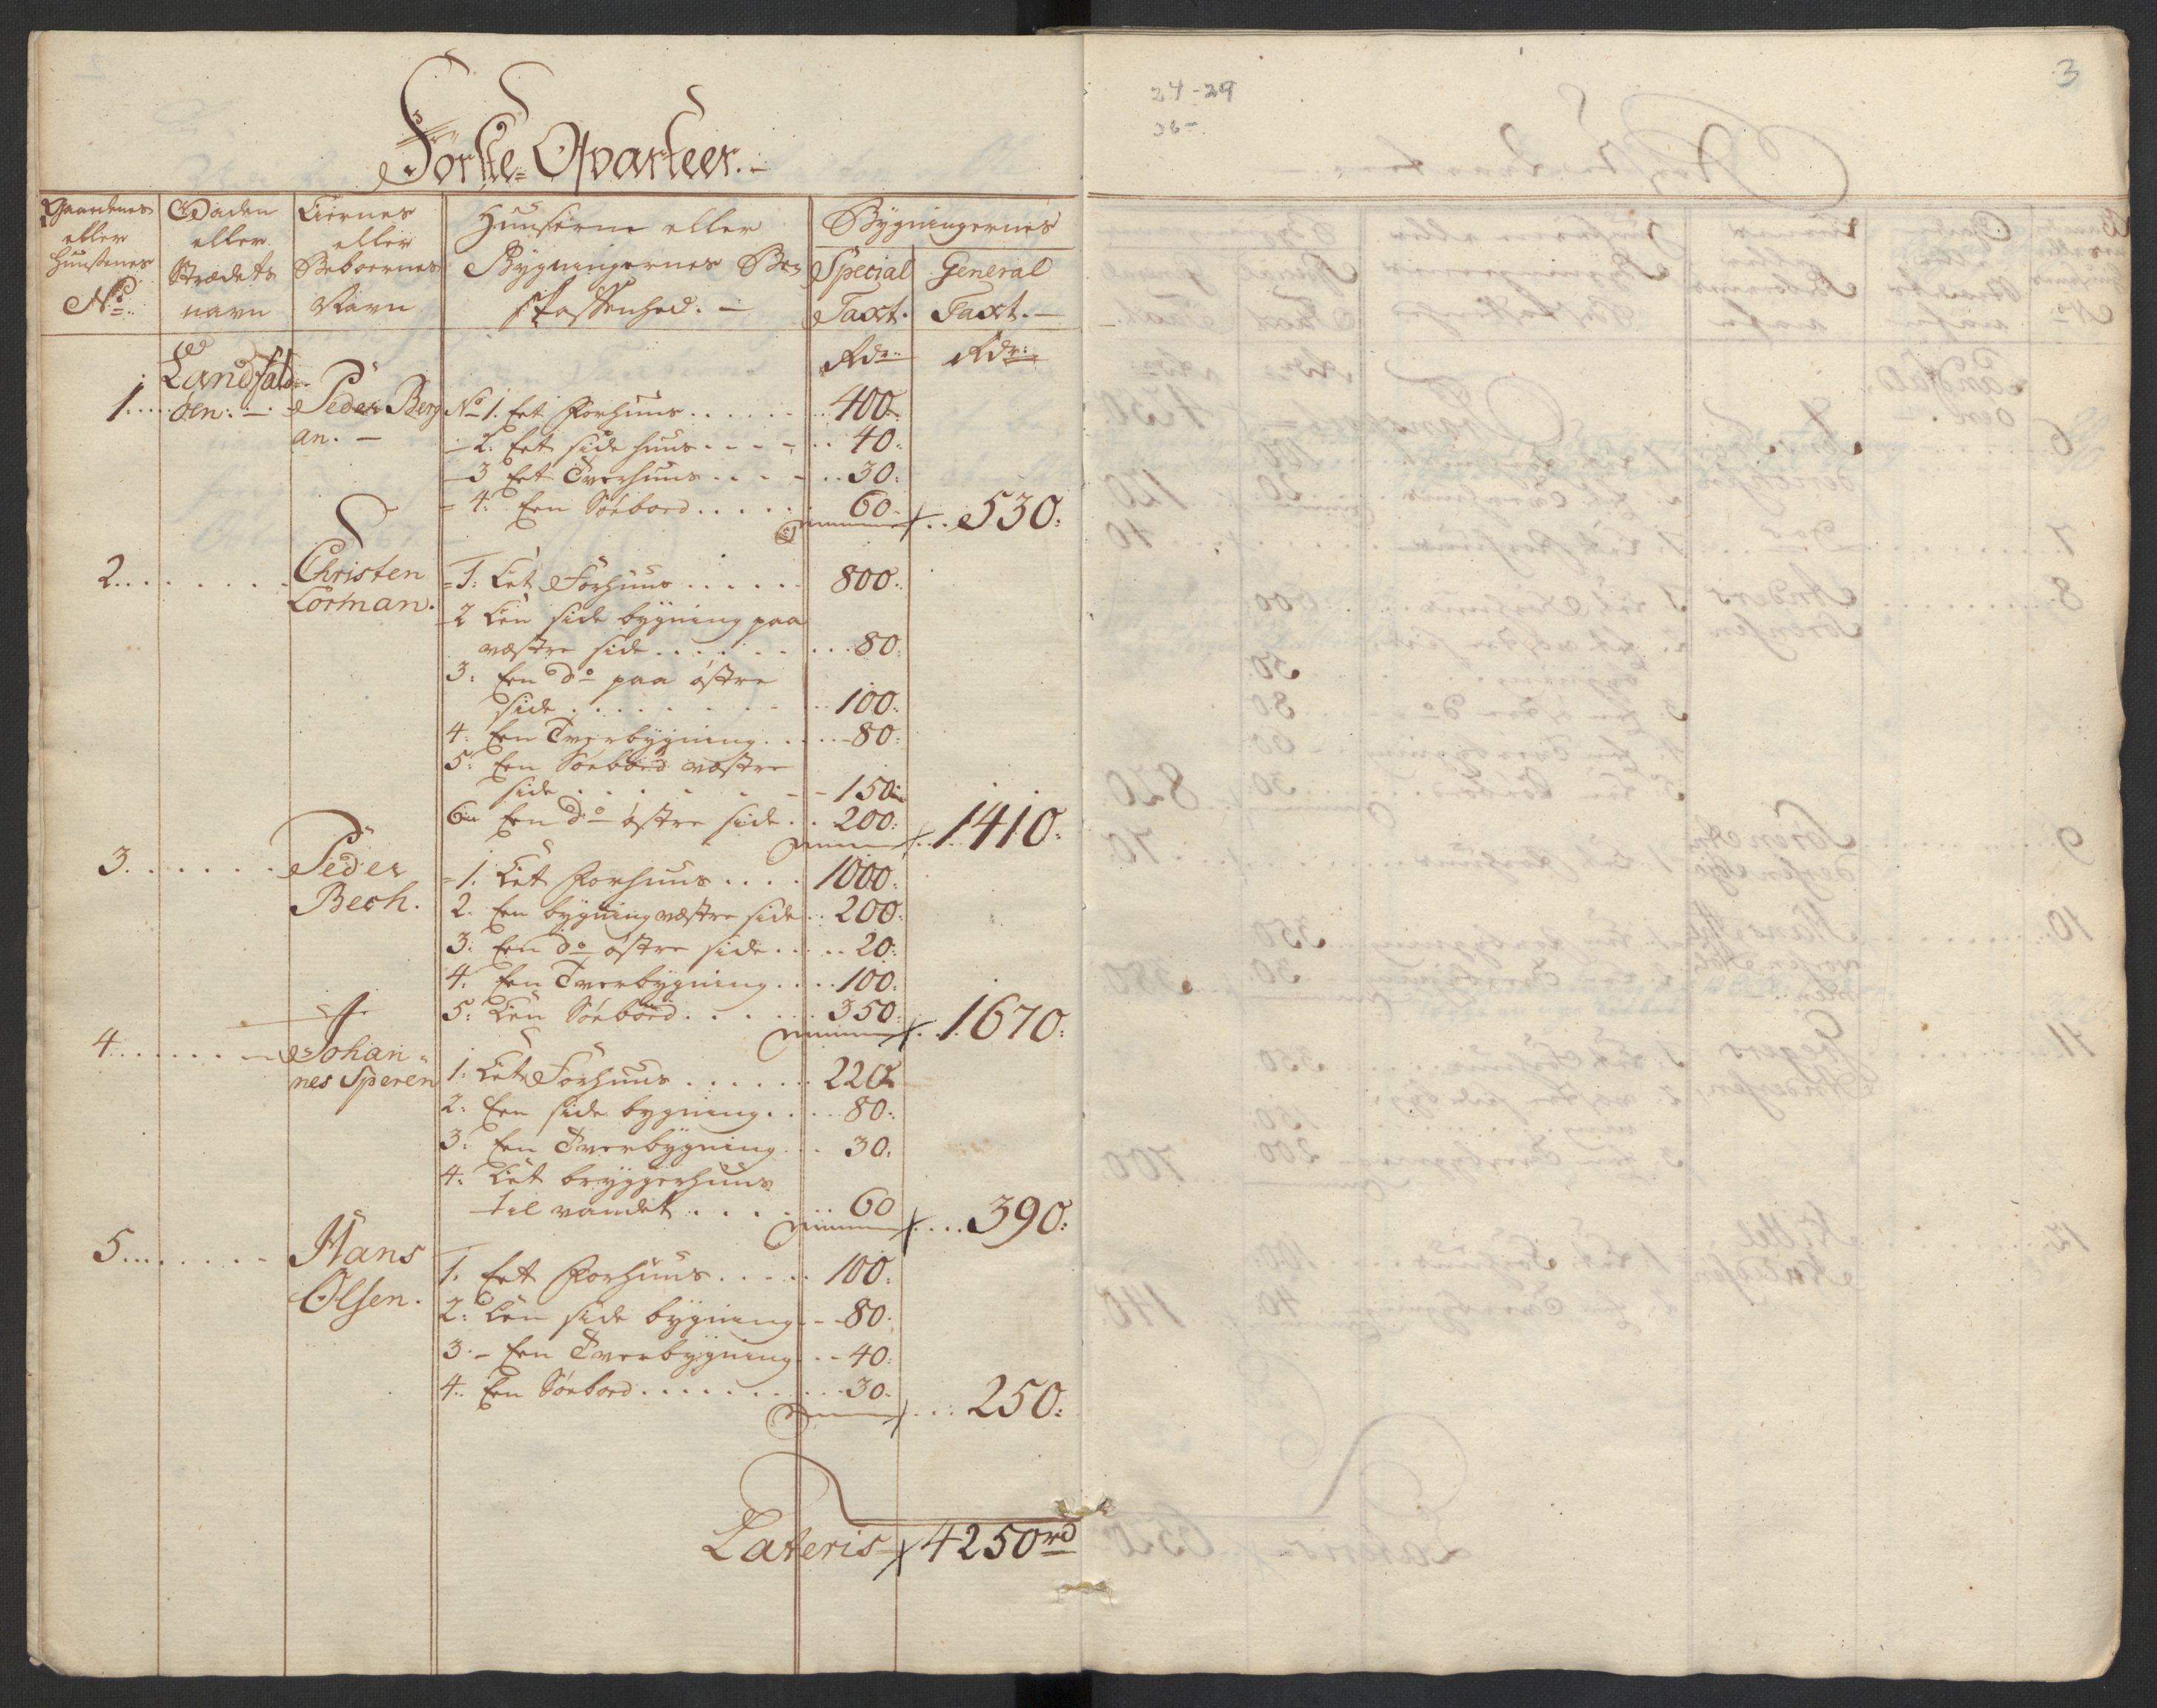 Förste Qvarteer.
Gaardenes eller Huusenes No.
Gaden eller Strædets navn
Eiernes eller Beboernes Navn
Huuserne eller Bygningernes Beskaffenhed.
Bygningernes
Special Taxt.
General Taxt.
Rdr: Rdr:
Landfald
1. öen. Peder Berg No 1. Eet Forhuus 400.
an. 2. Eet side huus 40.
3 Eet Tverhuus 30.
4. Een Söeboed 60. 530.
2. Christen 1. Eet Forhuus 800.
Lorman. 2 Een side bygning paa
væstre side 80.
3. Een do paa østre
side 100.
4. Een Tverbygning 80.
5. Een Söeboed væstre
side 150
6 Een do østre side 200. 1410.
3. Peder 1. Eet Forhuus 1000.
Bech. 2. Een bygning væstre side 200.
3. Een do østre side 20.
4. Een Tverbygning 100.
5. Een Söeboed 350. 1670.
4. Johan-
nes Speren 1. Eet Forhuus 220
2. Een side bygning 80.
3. Een Tverbygning 30.
4. Eet bryggerhuus
til vandet 60 390.
5. Hans 1. Eet Forhuus 100.
Olsen. 2. Een side bygning 80.
3. Een Tverbygning 40.
4. Een Söeboed 30. 250.
Lateris 4250 rd
24-29
3